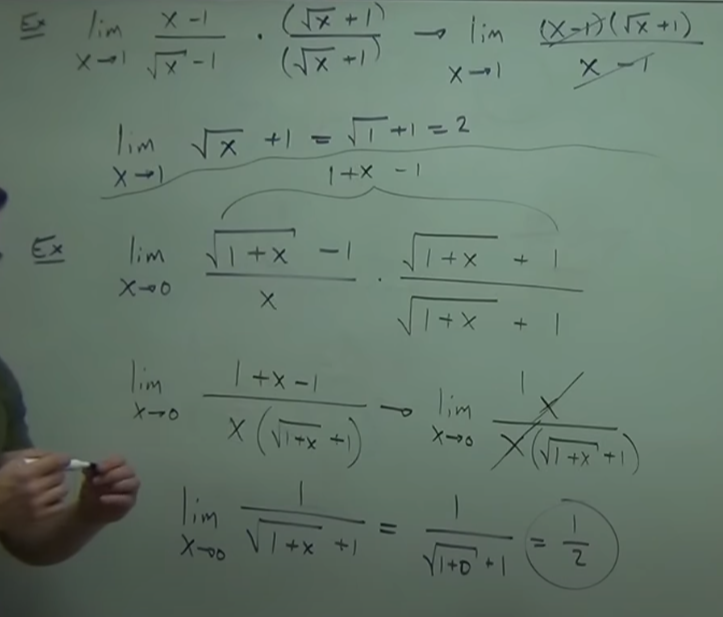 Ex lim x→1 (x-1)/(√x - 1) · (√x + 1)/(√x + 1) → lim x→1 (x-1)(√x + 1)/(x - 1)
lim x→1 √x + 1 = √1 + 1 = 2
1+x - 1
Ex lim x→0 (√(1+x) - 1)/x · (√(1+x) + 1)/(√(1+x) + 1)
lim x→0 (1+x-1)/(x(√(1+x) + 1)) → lim x→0 1 x/(x(√(1+x) + 1))
lim x→0 1/(√(1+x) + 1) = 1/(√(1+0) + 1) = 1/2